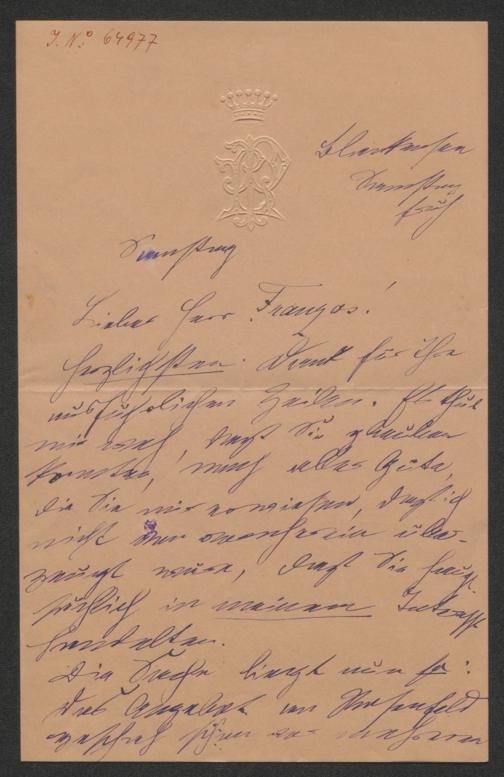 J. N.º 64977
Blankensee
Samstag
früh
Samstag
Lieber Herr Franzos!
Herzlichsten Dank für Ihre
ausführlichen Zeilen. Es thut
mir weh, daß Sie glauben
konnten, nach aller Güte,
die Sie mir erwiesen, daß ich
nicht von vornherein über-
zeugt wäre, daß Sie haupt-
sächlich in meinem Interesse
handelten.
Die Sache liegt nun so:
Das Angebot an Rosenfeld
geschah schon vor mehreren